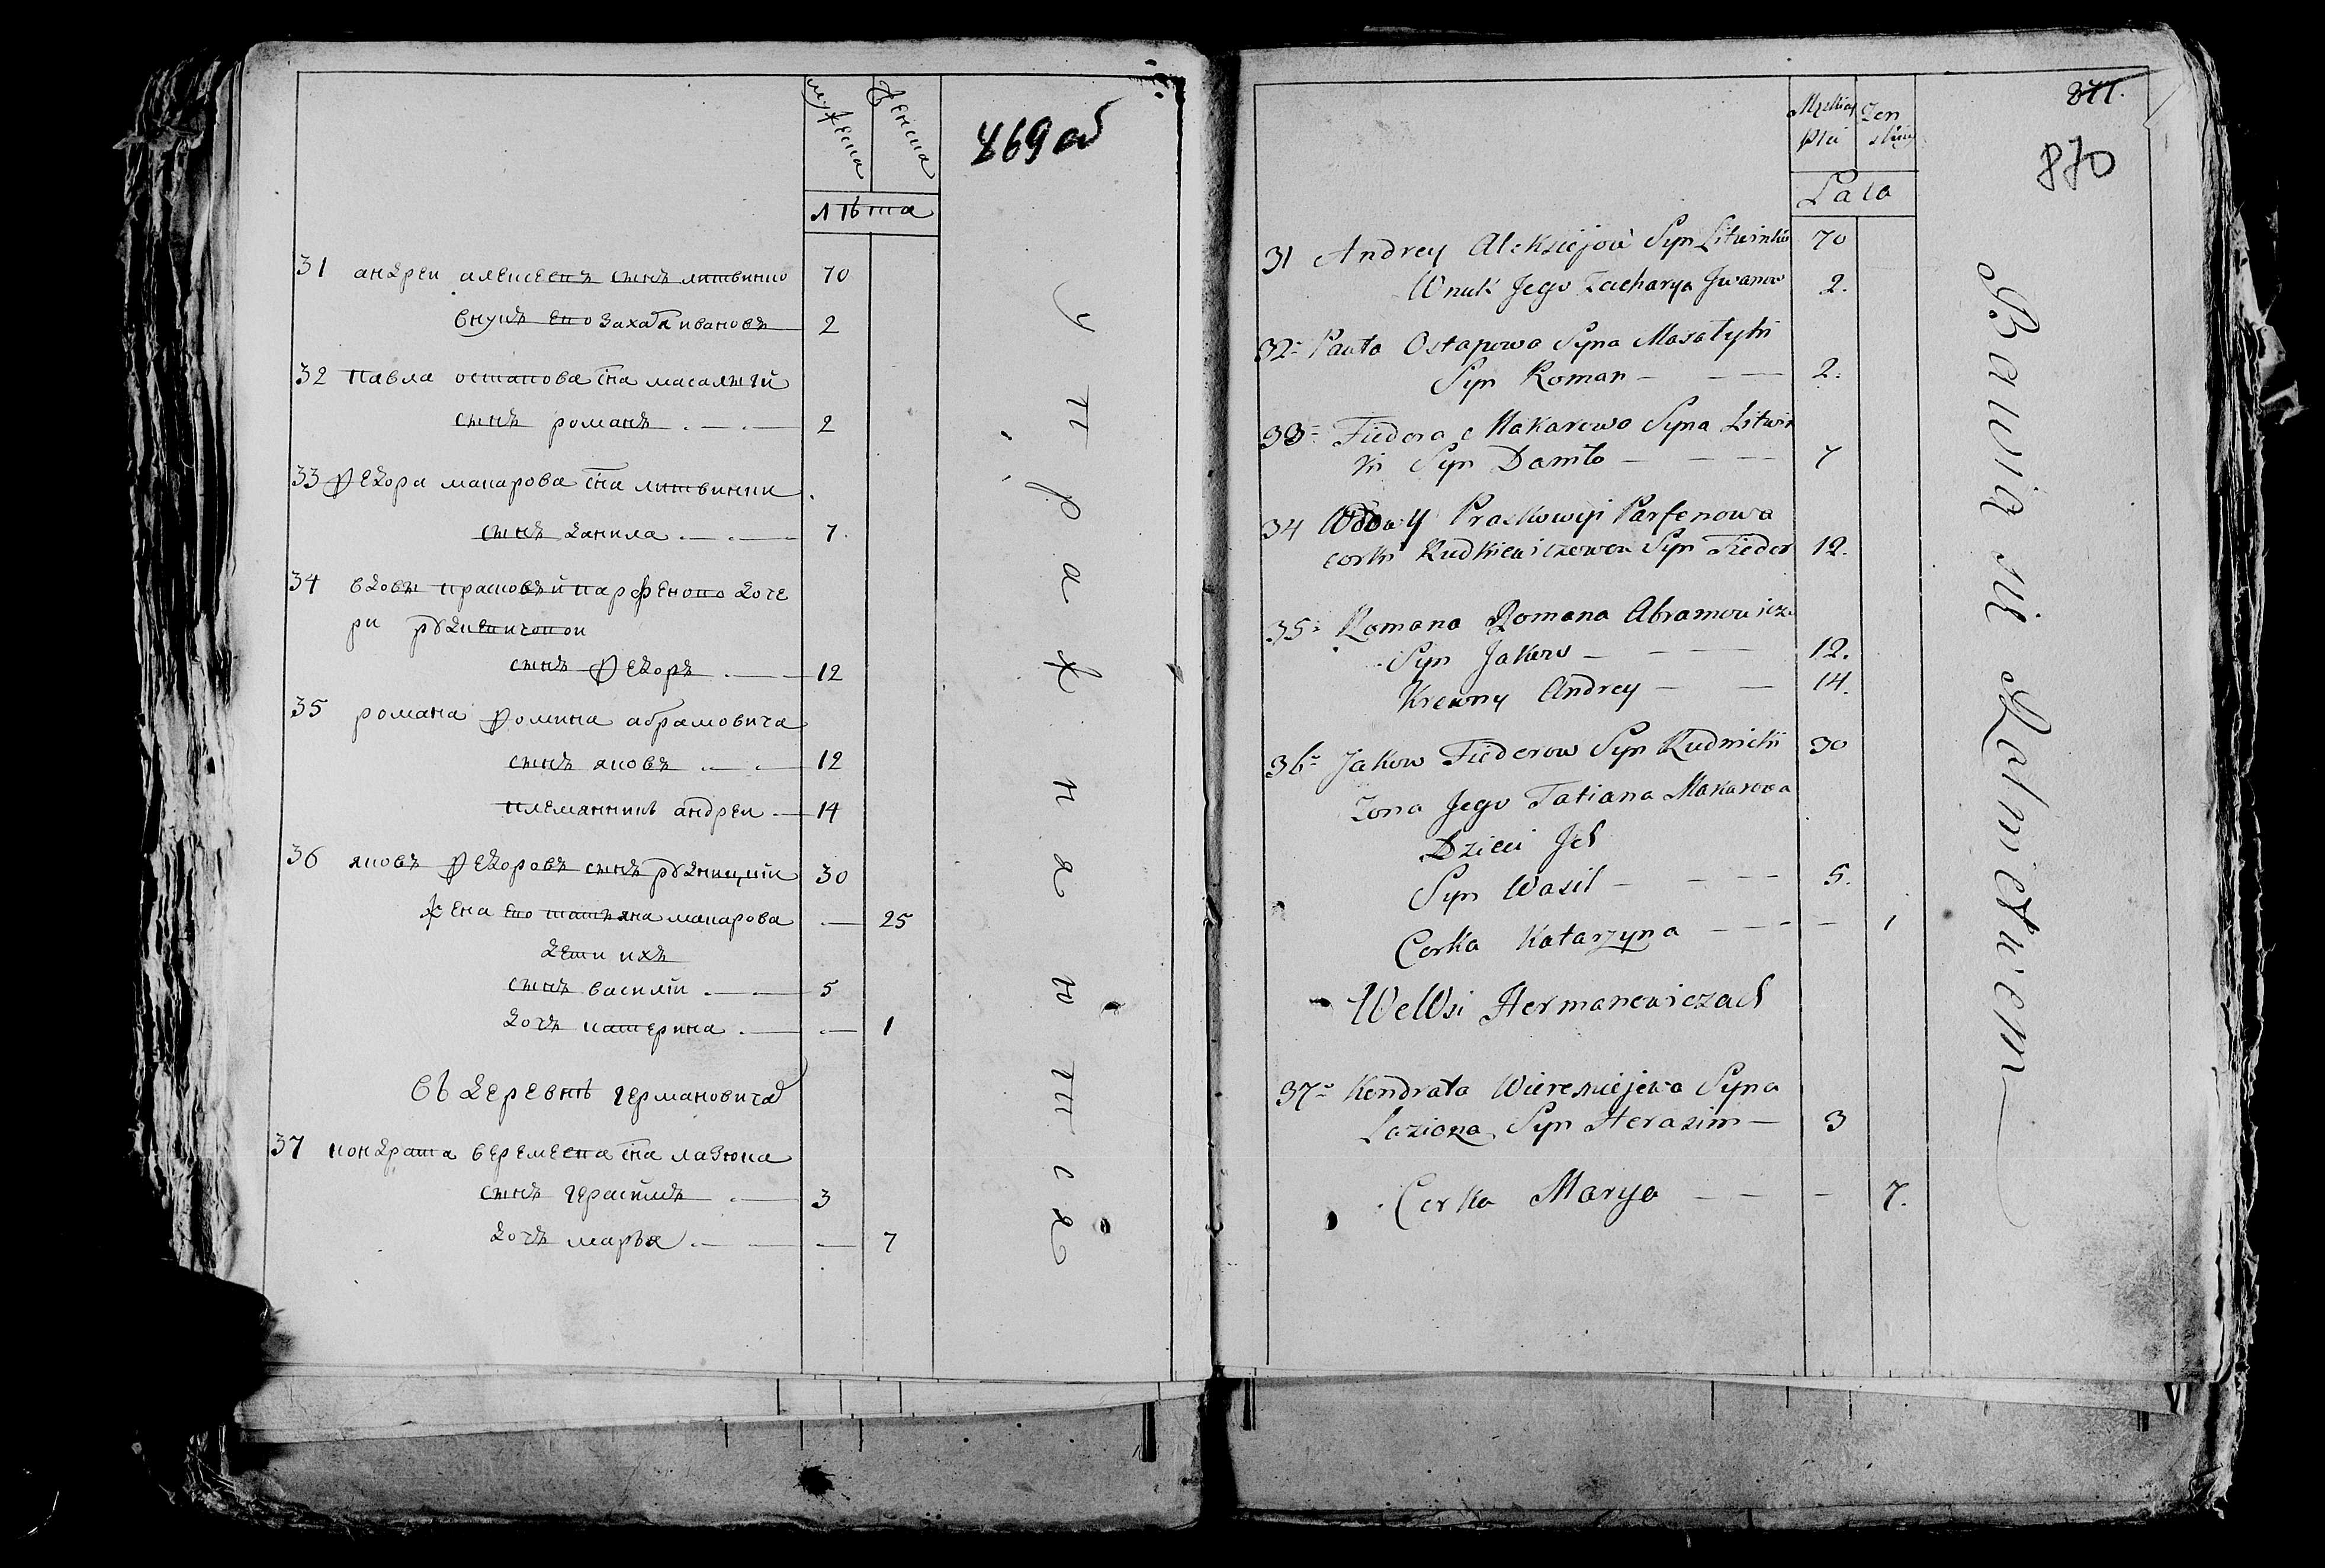 мужеска
женска
лѣта
869 об
31 андреи алексеевъ сынъ литвинко 70
внукъ его захаръ ивановъ 2
32 павла остапова сна масалыгй
сынъ романъ 2
33 федора макарова сна литвинки
сынъ данила 7.
34 вдовы прасковъи парфеново доче
ри рудкевичовои
сынъ федоръ 12
35 романа фомина абрамовича
сынъ яковъ 12
племянникъ андреи 14
36 яковъ федоровъ сынъ рудницкій 30
жена его татьяна макарова — 25
дети ихъ
сынъ василій 5
дочъ катерина — 1
въ деревнѣ германовичах
37 кондрата веремеева сна лазюка
сынъ герасимъ 3
дочъ маръя — 7
упражняются
871.
870
Męskiey płci
Zen skiey
Lata
31 Andrey Aleksiejow Syn Litwinko 70
Wnuk Jego Zacharya Jwanow 2.
32 Pawła Ostapowa Syna Masałyhi
Syn Roman — — 2.
33 Fiedora Makarowa Syna Litwin
ki Syn Daniło — — — 7
34 Wdowy Praskowyi Parfenowa
corki Rudkiewiczowey Syn Fiedor 12.
35 Romana Romana Abramowicza
Syn Jakow — — — 12.
Krewny Andrey — — 14.
36 Jakow Fiedorow Syn Rudnicki 30
Zona Jego Tatiana Makarowa
Dzieci Jch
Syn Wasil — — — 5.
Corka Katarzyna — — — — 1
We Wsi Hermanowiczach
37 Kondrata Wieremiejewa Syna
Laziona Syn Herasim — 3
Corka Marya — — — 7.
Bawią się Rolnictwem